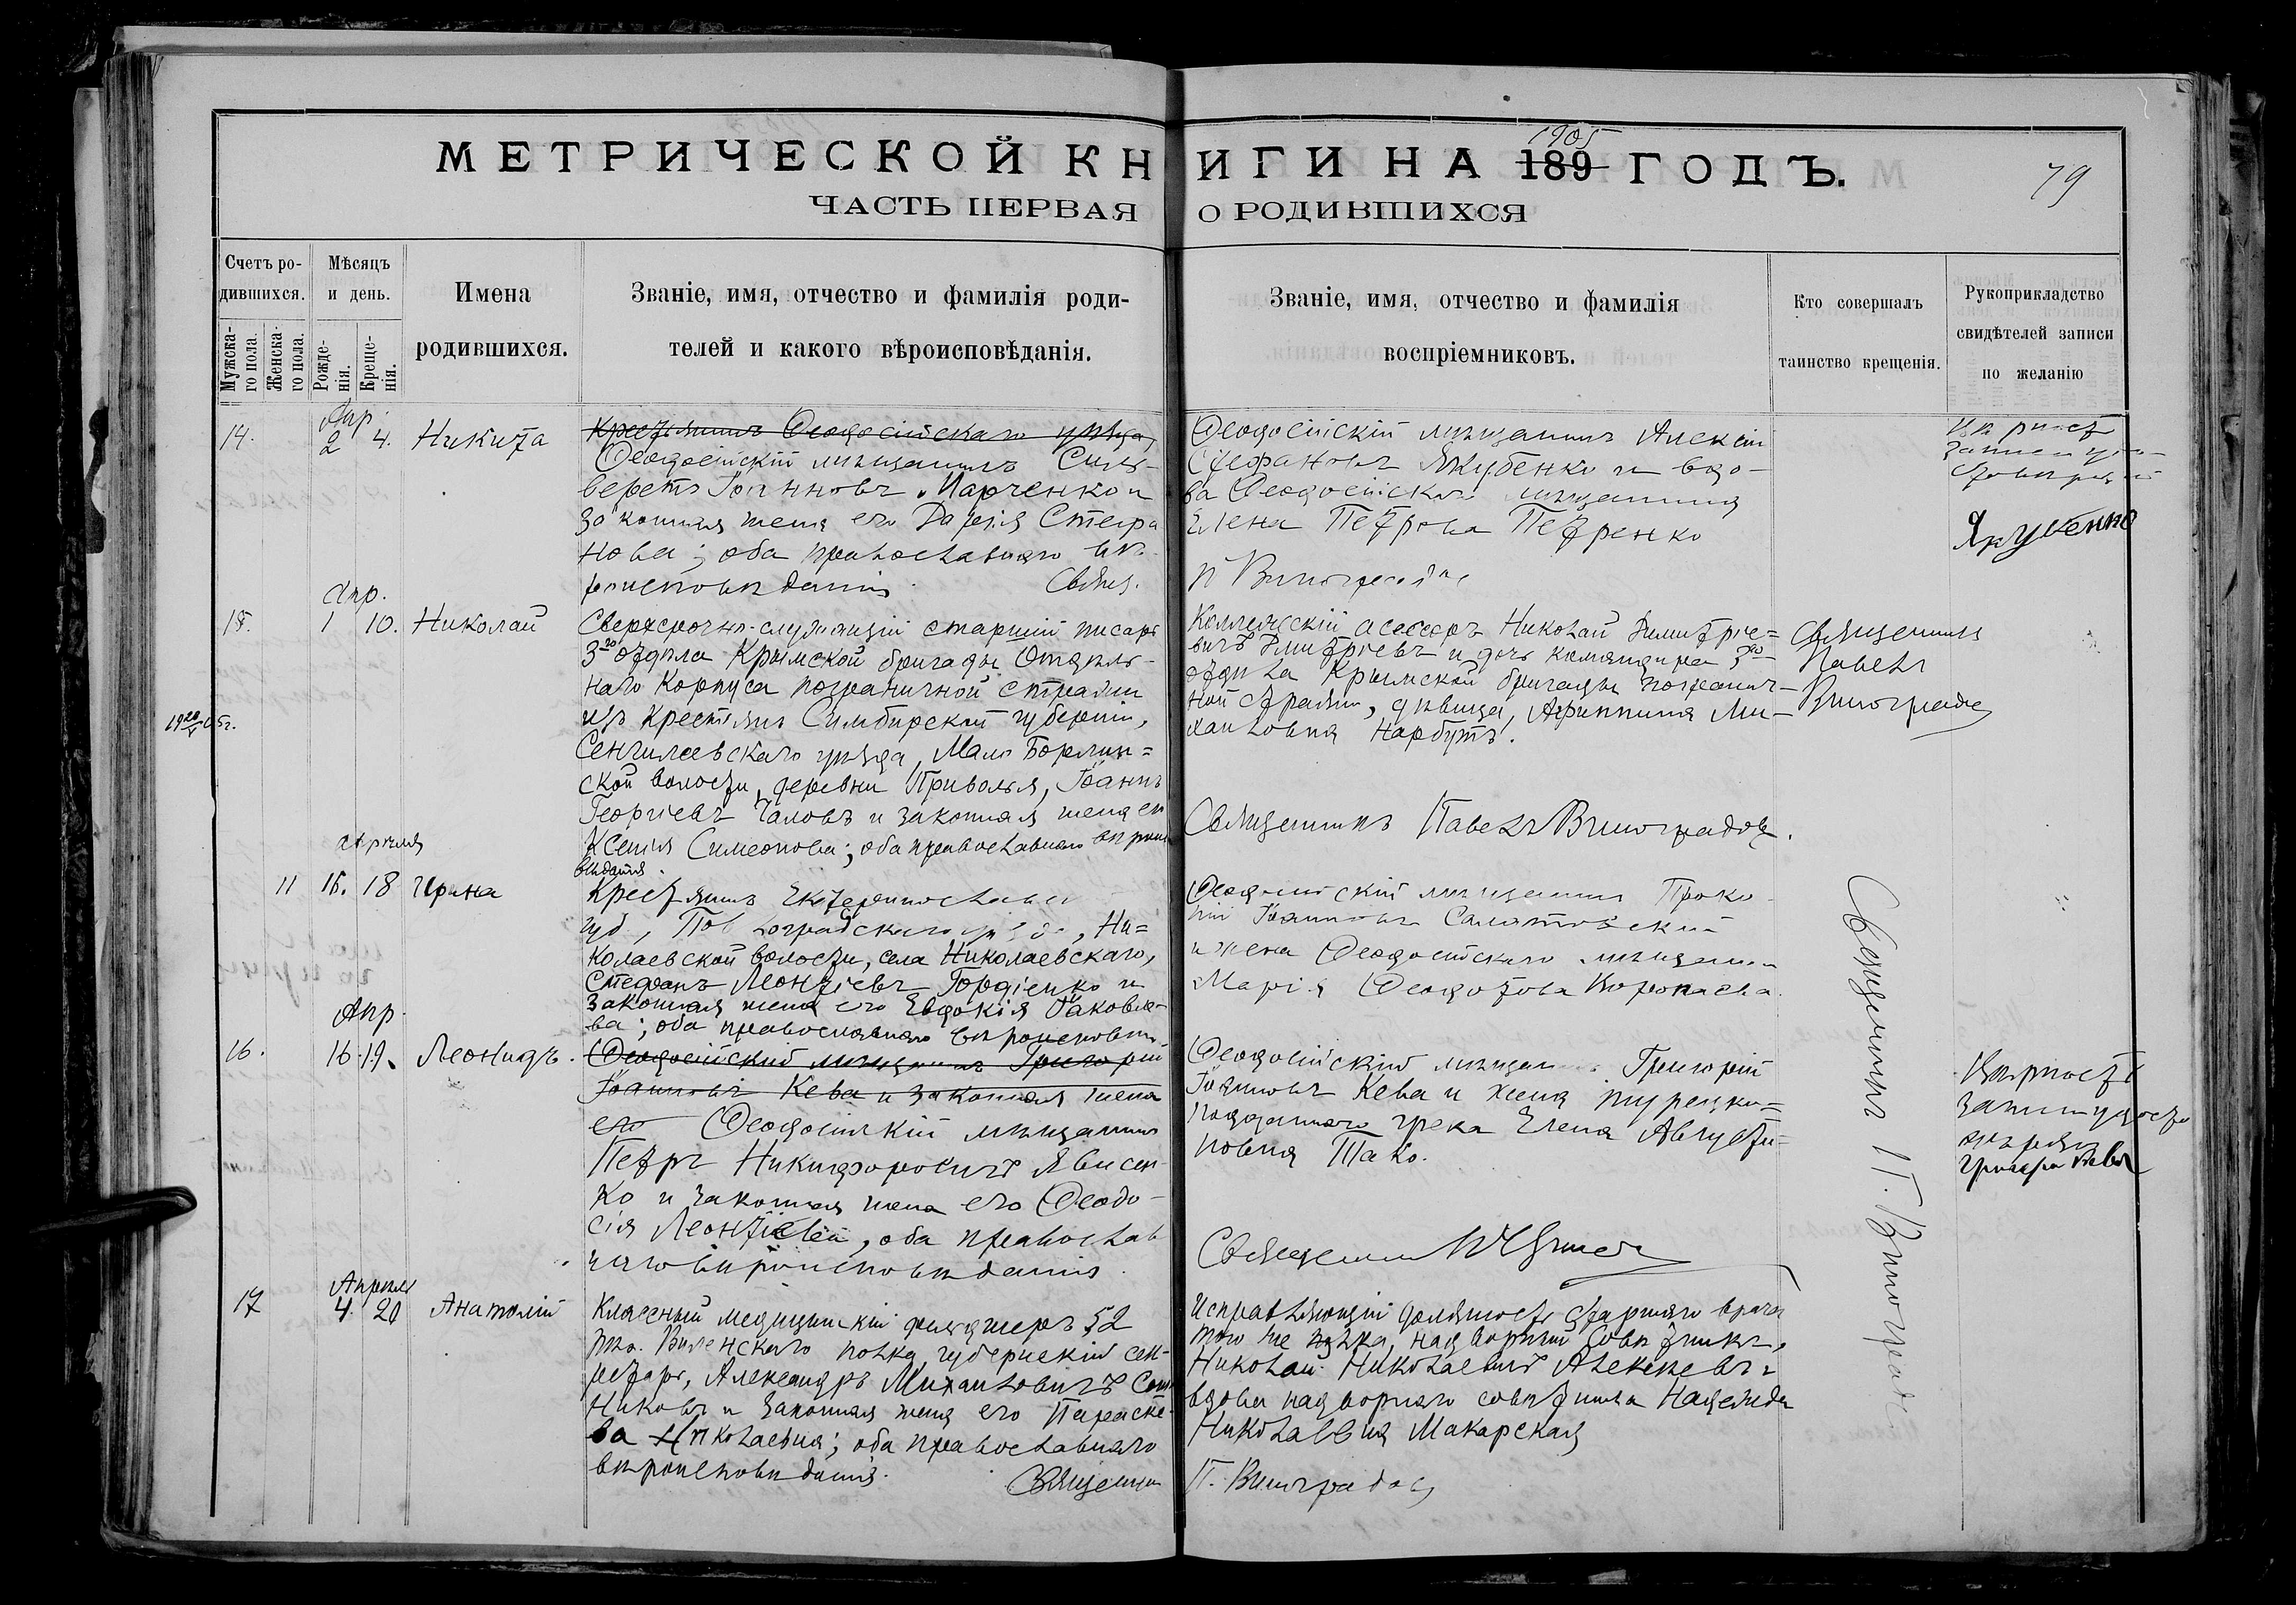 МЕТРИЧЕСКОЙ КНИГИ НА 189 1905 ГОДЪ.
79
ЧАСТЬ ПЕРВАЯ О РОДИВШИХСЯ
Счетъ родившихся.
Мужскаго пола.
Женскаго пола.
Мѣсяцъ и день.
Рожденія.
Крещенія.
Имена родившихся.
Званіе, имя, отчество и фамилія родителей и какого вѣроисповѣданія.
Званіе, имя, отчество и фамилія воспріемниковъ.
Кто совершалъ таинство крещенія.
Рукоприкладство свидѣтелей записи по желанію
14.
Апр.
2 4.
Никита
Крестьянинъ Ѳеодосійскаго уѣзда,
Ѳеодосійскій мѣщанинъ Силь-
верстъ Іоанновъ Марченко и
законная жена его Дарія Стефа
нова; оба православнаго вѣ-
роисповѣданія. Свящ.
Ѳеодосійскій мѣщанинъ Алексій
Стефановъ Якубенко и вдо-
ва Ѳеодосійскаго мѣщанина
Елена Петрова Петренко
П Виноградовъ
Якубенко
15.
Апр.
1 10.
Николай
Сверхсрочно-служащій старшій писарь
3го отдѣла Крымской бригады Отдѣль-
наго Корпуса пограничной стражи
изъ крестьянъ Симбирской губерніи,
Сенгилеевскаго уѣзда, Мало Борлин=
ской волости, деревни Приволья, Іоаннъ
Георгіевъ Чаловъ и законная жена его
Ксенія Симеонова; оба православнаго вѣроиспо
вѣданія.
Коллежскій асессоръ Николай Димитріе=
вичъ Дмитріевъ и дочь командира 3го
отдѣла Крымской бригады погранич-
ной стражи, дѣвица, Агриппина Ми-
хаиловна Нарбутъ.
Священникъ
Павелъ
Виноградовъ
Священникъ Павелъ Виноградовъ.
апрѣля
11 15. 18 Ирина
Крестьянинъ Екатеринославск
губ., Павлоградскаго уѣзда, Ни=
колаевской волости, села Николаевскаго,
Стефанъ Леонтіевъ Гордіенко и
законная жена его Евдокія Іаковле-
ва; оба православнаго вѣроисповѣд.
Ѳеодосійскій мѣщанинъ Проко-
пій Іоанновъ
и жена Ѳеодосійскаго мѣщанина
Марія Ѳеодотова
Священникъ П. Виноградовъ
16.
Апр.
16 19.
Леонидъ.
Ѳеодосійский мѣщанинъ Григорій
Іоанновъ Кева и законная жена
его Ѳеодосійскій мѣщанинъ
Петръ Никифоровичъ Явисен-
ко и законная жена его Ѳеодо-
сія Леонтіева, оба православ
наго вѣроисповѣданія.
Ѳеодосійский мѣщанинъ Григорій
Іоанновъ Кева и жена турецко=
подданнаго грека Елена Августи=
новна Тако.
Священникъ
Григорій Кева
17
Апрѣля
4. 20
Анатолій
Классный медицинскій фельдшеръ 52
пѣх. Виленскаго полка, губернскій сек-
ретарь, Александръ Михаиловичъ
никовъ и законная жена его Параске-
ва Николаевна; оба православнаго
вѣроисповѣданія. Священникъ
Исправляющій должность старшаго врача
того же полка, надворный совѣтникъ,
Николай Николаевичъ Алексѣевъ и
вдова надворнаго совѣтника Надежда
Николаевна Макарская
П. Виноградовъ